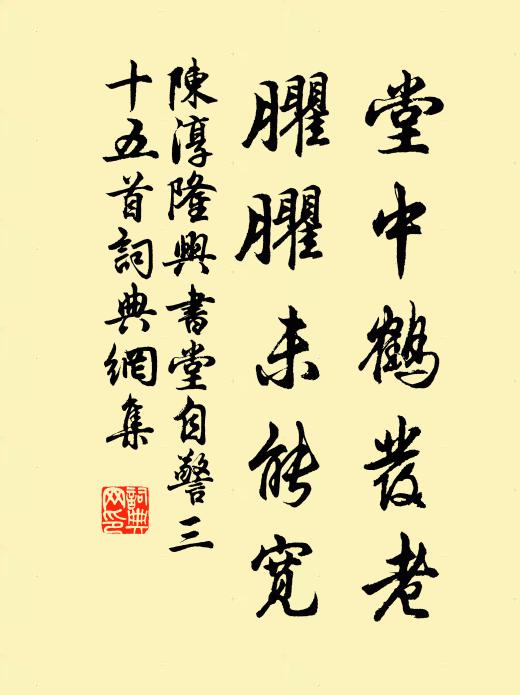 堂中鶴發老
臞臞未能寬
陳淳隆興書堂自警三
十五首詞典網集
詞典網印